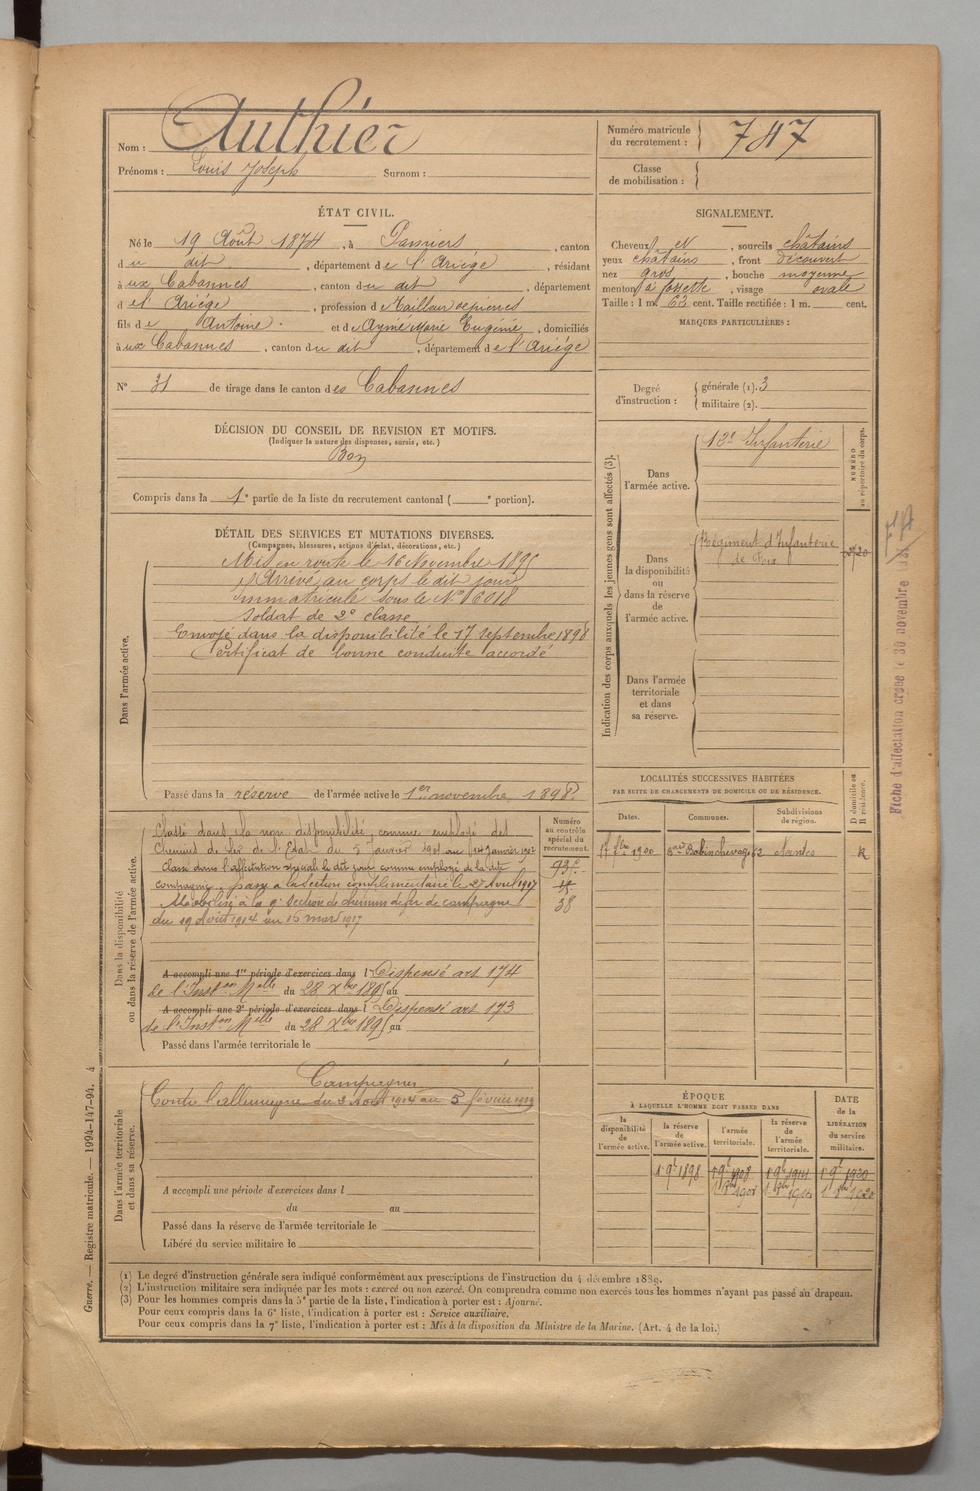 Nom : Authier
Prénoms : Louis Joseph Surnom :
Numéro matricule du recrutement : 747
Classe de mobilisation :
ÉTAT CIVIL.
Né le 19 Août 1874, à Pamiers, canton
du dit, département de l'Ariège, résidant
à ux Cabannes, canton du dit, département
d el Ariége, profession de tailleur de pierres
fils de Antoine et de Aymé Marie Eugénie, domiciliés
à ux Cabannes, canton du dit, département de l'Ariége
N° 31 de tirage dans le canton des Cabannes
SIGNALEMENT.
Cheveux et, sourcils châtains
yeux châtains, front découvert
nez gros, bouche moyenne
menton à fossette, visage ovale
Taille : 1 m. 63 cent. Taille rectifiée : 1 m. cent.
MARQUES PARTICULIÈRES :
Degré d'instruction : générale (1). 3
militaire (2).
DÉCISION DU CONSEIL DE REVISION ET MOTIFS.
(Indiquer la nature des dispenses, sursis, etc.)
Bon
Compris dans la 1e partie de la liste du recrutement cantonal ( e portion).
DÉTAIL DES SERVICES ET MUTATIONS DIVERSES.
(Campagnes, blessures, actions d'éclat, décorations, etc.)
Dans l'armée active.
Mis en route le 16 Novembre 1895
Arrivé au corps le dit jour
immatriculé sous le N° 6018
Soldat de 2e classe
Envoyé dans la disponibilité le 17 septembre 1898
Certificat de bonne conduite accordé
Passé dans la réserve de l'armée active le 1er novembre 1898.
Indication des corps auxquels les jeunes gens sont affectés (3).
NUMÉRO au répertoire du corps.
Dans l'armée active.
12e Infanterie
Dans la disponibilité ou dans la réserve de l'armée active.
Régiment d'Infanterie
de Foix
Dans l'armée territoriale et dans sa réserve.
Fiche d'affectation créée le 30 novembre
Dans la disponibilité ou dans la réserve de l'armée active.
Classé dans la non disponibilité comme employé des
Chemins de fer de l'Etat du 5 janvier 1901 au 14 Janvier
Classé dans l'affectation spéciale le dit jour comme employé de la dite
compagnie, passé à la section complémentaire le 27 Avril 1917
Mobilisé à la 9e section de chemins de fer de campagne
du 19 Août 1914 au 15 mars 1917
Numéro au contrôle spécial du recrutement.
38
A accompli une 1re période d'exercices dans l Dispensé art. 174
de l'Inston Melle du 28 Xbre 1895 au
A accompli une 2e période d'exercices dans l Dispensé art 173
de l'Inston Melle du 28 Xbre 1895 au
Passé dans l'armée territoriale le
LOCALITÉS SUCCESSIVES HABITÉES
PAR SUITE DE CHANGEMENTS DE DOMICILE OU DE RÉSIDENCE.
Dates. Communes. Subdivisions de région. D domicile ou R résidence.
1900 Nantes R
Dans l'armée territoriale et dans sa réserve.
Campagnes
Contre l'allemagne du 2 Août 1914 au 5 février 1919
A accompli une période d'exercices dans l
du au
Passé dans la réserve de l'armée territoriale le
Libéré du service militaire le
ÉPOQUE
À LAQUELLE L'HOMME DOIT PASSER DANS
la disponibilité de l'armée active.
la réserve de l'armée active.
l'armée territoriale.
la réserve de l'armée territoriale.
DATE de la LIBÉRATION du service militaire.
1 9e 1898 1 9e 1908 1 9e 1914 1 9e 1920
(1) Le degré d'instruction générale sera indiqué conformément aux prescriptions de l'instruction du 4 décembre 1889.
(2) L'instruction militaire sera indiquée par les mots : exercé ou non exercé. On comprendra comme non exercés tous les hommes n'ayant pas passé au drapeau.
(3) Pour les hommes compris dans la 5e partie de la liste, l'indication à porter est : Ajourné.
Pour ceux compris dans la 6e liste, l'indication à porter est : Service auxiliaire.
Pour ceux compris dans la 7e liste, l'indication à porter est : Mis à la disposition du Ministre de la Marine. (Art. 4 de la loi.)
Guerre. — Registre matricule. — 1994-147-94. 4